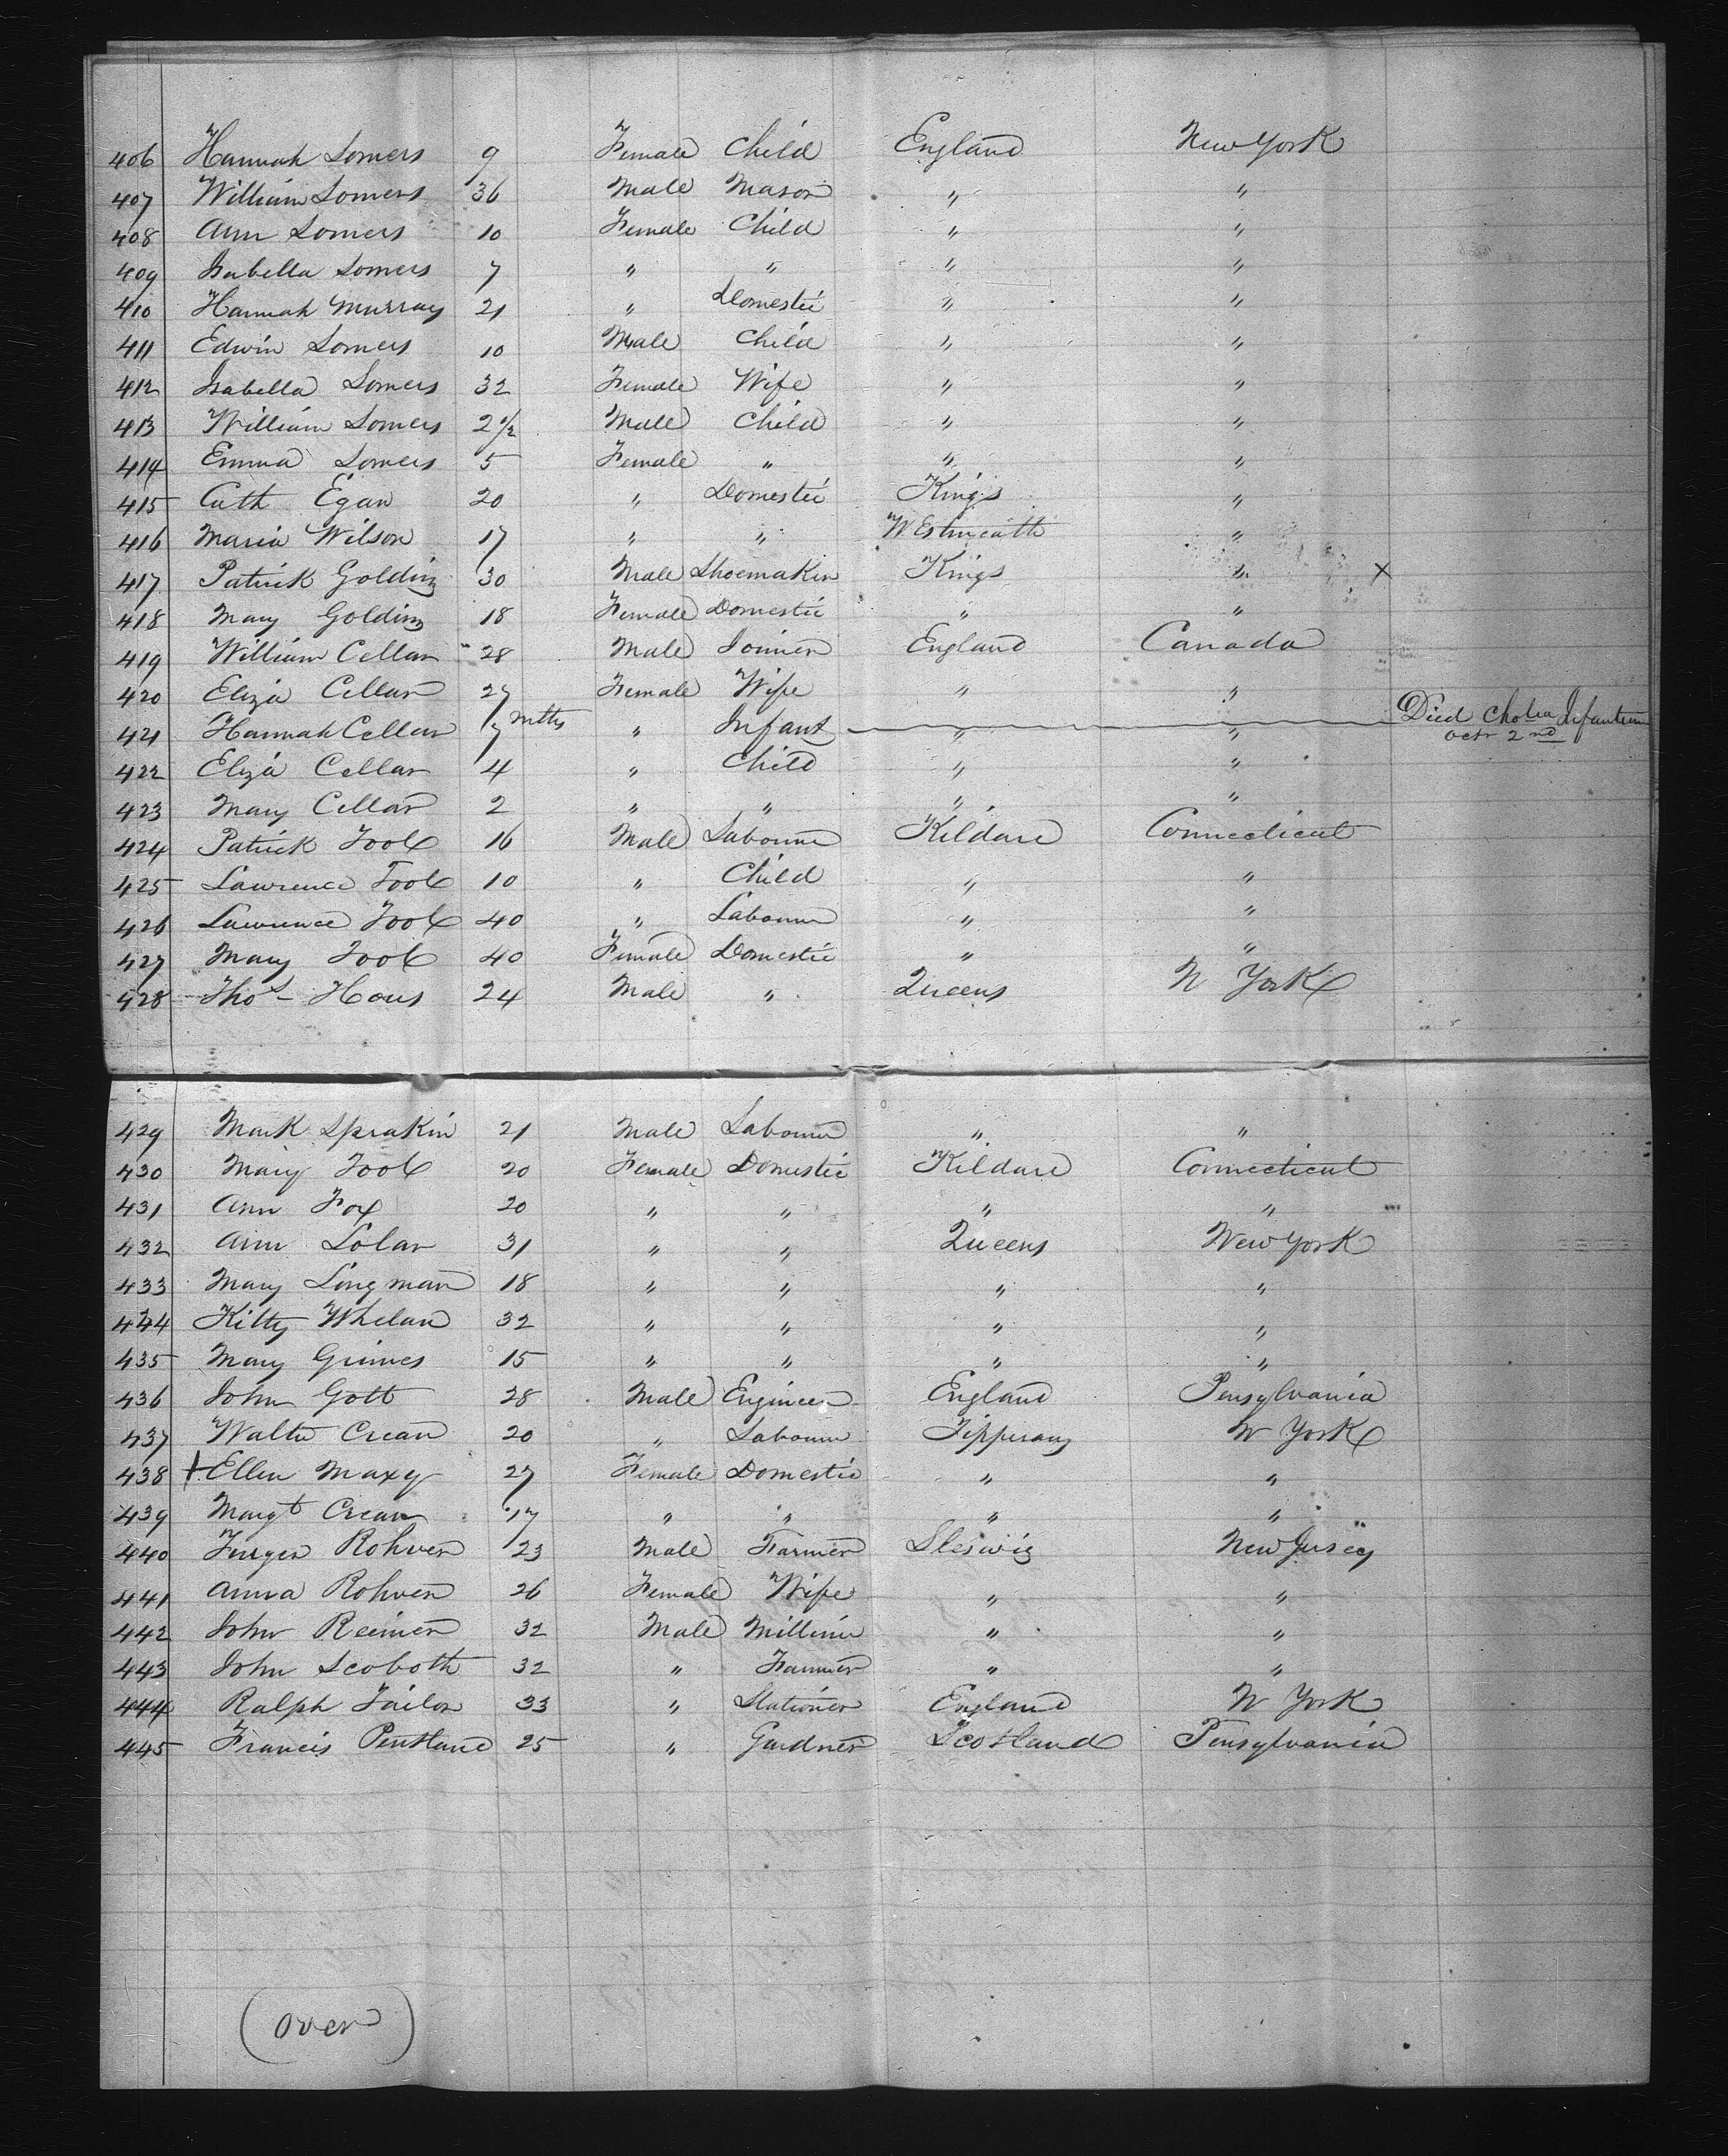 406 Hannah Somers 9 Female Child England New York
407 William Somers 36 Male Mason " "
408 Ann Somers 10 Female Child " "
409 Isabella Somers 7 " " " "
410 Hannah Murray 21 " Domestic " "
411 Edwin Somers 10 Male Child " "
412 Isabella Somers 32 Female Wife " "
413 William Somers 2 1/2 Male Child " "
414 Emma Somers 5 Female " " "
415 Cath Egan 20 " Domestic Kings "
416 Maria Wilson 17 " " WEstmeath "
417 Patrick Golding 30 Male Shoemaker Kings " X
418 Mary Golding 18 Female Domestic " "
419 William Cellar 28 Male Joiner England Canada
420 Eliza Cellar 27 Female Wife " "
421 Hannah Cellar 7 mths " Infant " " Died Cholra Infantum
Octr 2nd
422 Eliza Cellar 4 " Child " "
423 Mary Cellar 2 " " " "
424 Patrick Toole 16 Male Labourer Kildare Connecticut
425 Lawrence Toole 10 " Child " "
426 Lawrence Toole 40 " Labourer " "
427 Mary Toole 40 Female Domestic " "
428 Thos Hous 24 Male " Queens N York
429 Mark Sprakin 21 Male Labourer " "
430 Mary Toole 20 Female Domestic Kildare Connecticut
431 Ann Fox 20 " " " "
432 Ann Lolar 31 " " Queens New York
433 Mary Lingman 18 " " " "
434 Kitty Whelan 32 " " " "
435 Mary Grimes 15 " " " "
436 John Gott 28 Male Engineer England Pensylvania
437 Walter Crean 20 " Labourer Tipperary N York
438 + Ellen Maxy 27 Female Domestic " "
439 Margt Crean 17 " " " "
440 Rohver 23 Male Farmer Sleswig New Jersey
441 Anna Rohver 26 Female Wife " "
442 John Reimer 32 Male Milliner " "
443 John Scoboth 32 " Farmer " "
444 Ralph Tailor 33 " Stationer England N York
445 Francis Pentland 25 " Gardner Scotland Pensylvania
(over)